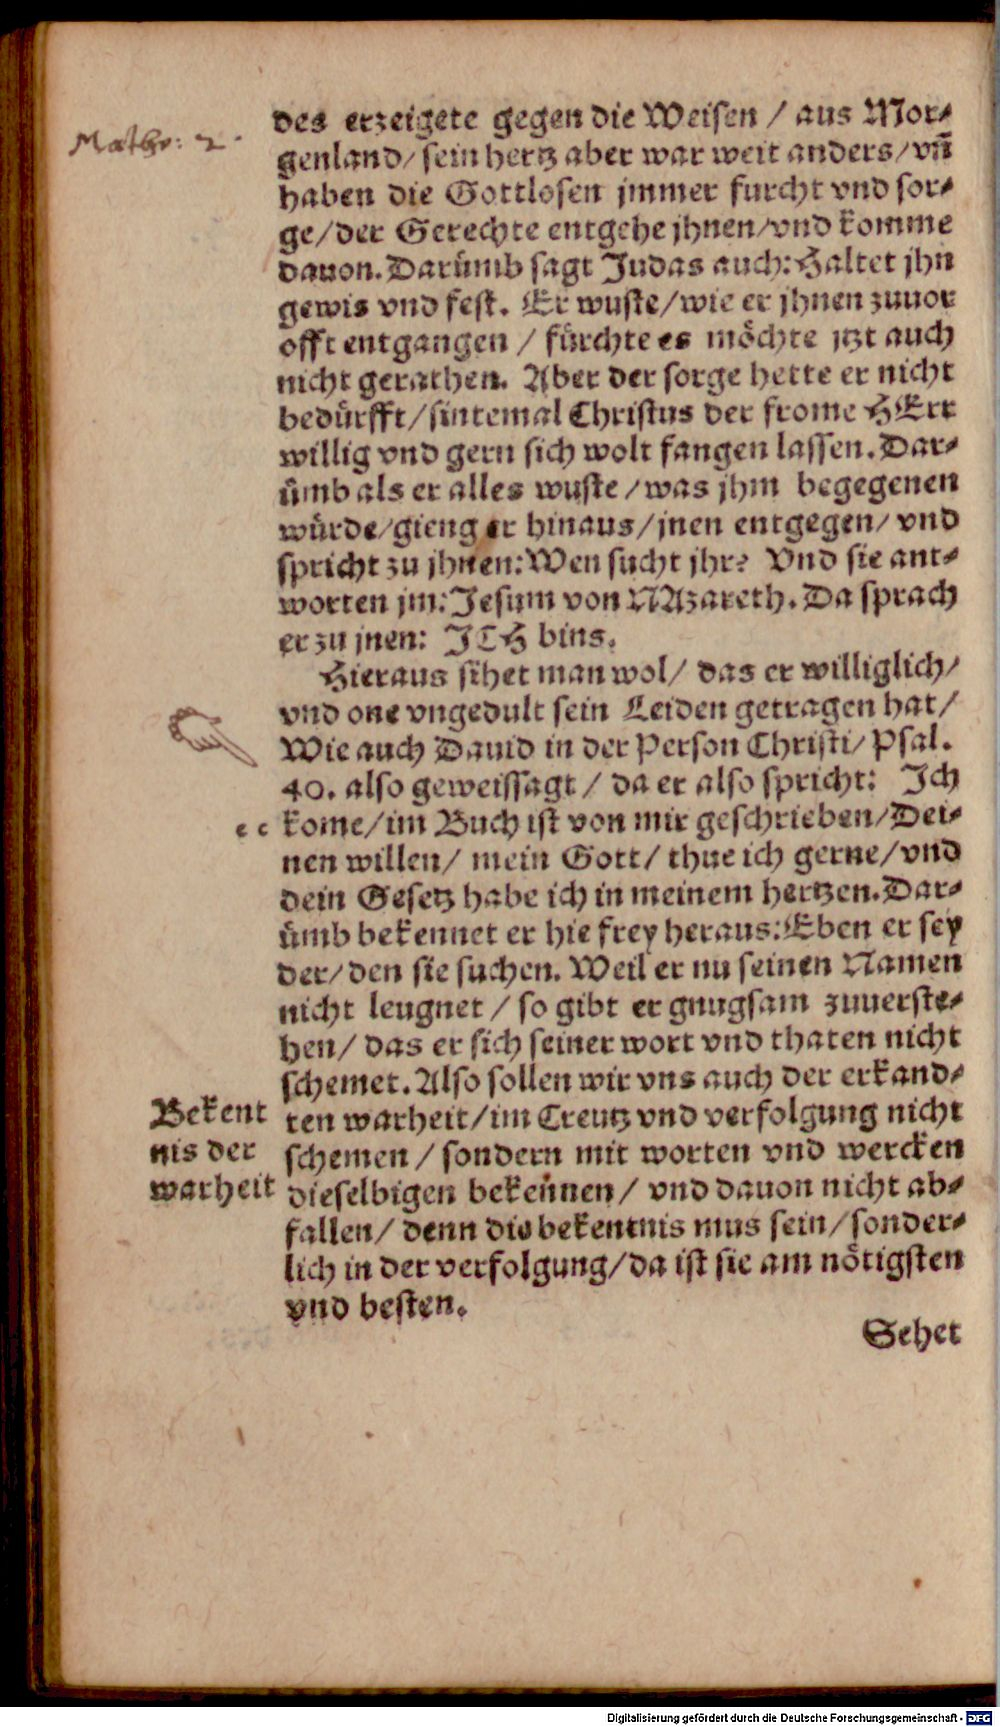 des erzeigete gegen die Weisen / aus Mor-
Mathæ: 2.
genland/ sein hertz aber war weit anders/ vñ
haben die Gottlosen jmmer furcht vnd sor-
ge/ der Gerechte entgehe jhnen/ vnd komme
dauon. Darümb sagt Judas auch: Haltet jhn
gewis vnd fest. Er wuste/ wie er jhnen zuuor
offt entgangen / fürchte es möchte jtzt auch
nicht gerathen. Aber der sorge hette er nicht
bedürfft/ sintemal Christus der frome HErr
willig vnd gern sich wolt fangen lassen. Dar-
ümb als er alles wuste / was jhm begegenen
würde/ gieng er hinaus/ jnen entgegen/ vnd
spricht zu jhnen: Wen sucht jhr? Vnd sie ant-
worten jm: Jesum von NAzareth. Da sprach
er zu jnen: JCH bins.
Hieraus sihet man wol/ das er williglich/
vnd one vngedult sein Leiden getragen hat/
Wie auch Dauid in der Person Christi/ Psal.
40. also geweissagt / da er also spricht: Ich
c c kome/ im Buch ist von mir geschrieben/ Dei-
nen willen/ mein Gott/ thue ich gerne/ vnd
dein Gesetz habe ich in meinem hertzen. Dar-
ümb bekennet er hie frey heraus: Eben er sey
der/ den sie suchen. Weil er nu seinen Namen
nicht leugnet / so gibt er gnugsam zuuerste-
hen/ das er sich seiner wort vnd thaten nicht
schemet. Also sollen wir vns auch der erkand-
Bekent
nis der
warheit
ten warheit/ im Creutz vnd verfolgung nicht
schemen / sondern mit worten vnd wercken
dieselbigen bekennen/ vnd dauon nicht ab-
fallen/ denn die bekentnis mus sein/ sonder-
lich in der verfolgung/ da ist sie am nötigsten
vnd besten.
Sehet
Digitalisierung gefördert durch die Deutsche Forschungsgemeinschaft - DFG